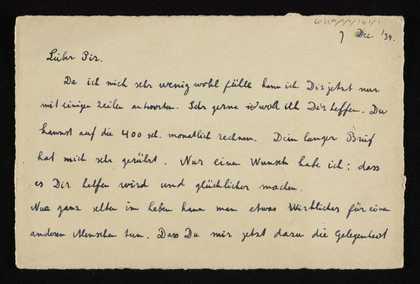 7 Dec. '39.
Lieber Pir.
Da ich mich sehr wenig wohl fühle kann ich Dir jetzt nur
mit einigen Zeilen antworten. Sehr gerne will ich Dir helfen. Du
kannst auf die 400 sch. monatlich rechnen. Dein langer Brief
hat mich sehr gerührt. Nur einen Wunsch habe ich: dass
es Dir helfen wird und glücklicher machen.
Nur ganz selten im Leben kann man etwas Wirkliches für einen
anderen Menschen tun. Dass Du mir jetzt dazu die Gelegenheit